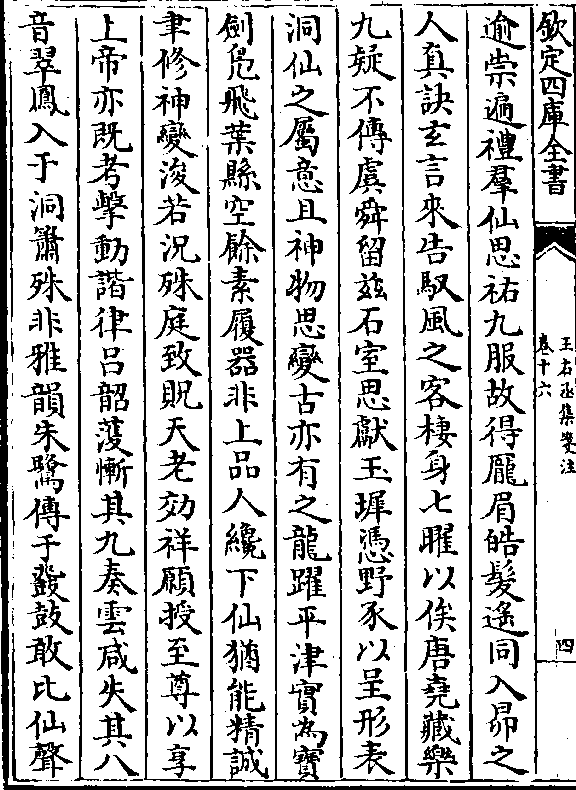 欽定四庫全書
王右丞集箋注
卷十六
四
逾崇遍禮羣仙思祐九服故得厖眉皓髮遙同入昴之
人真訣玄言來告馭風之客棲身七曜以俟唐堯藏樂
九疑不傳虞舜留兹石室思獻玉墀憑野豕以呈形表
洞仙之屬意且神物思變古亦有之龍躍平津實為寶
劍鳬飛葉縣空餘素履器非上品人纔下仙猶能精誠
聿修神變浚若況殊庭致貺天老効祥願授至尊以享
上帝亦既考擊動諧律呂韶頀慚其九奏雲咸失其八
音翠鳳入于洞簫殊非雅韻朱鷺傳于鼗鼓敢比仙聲